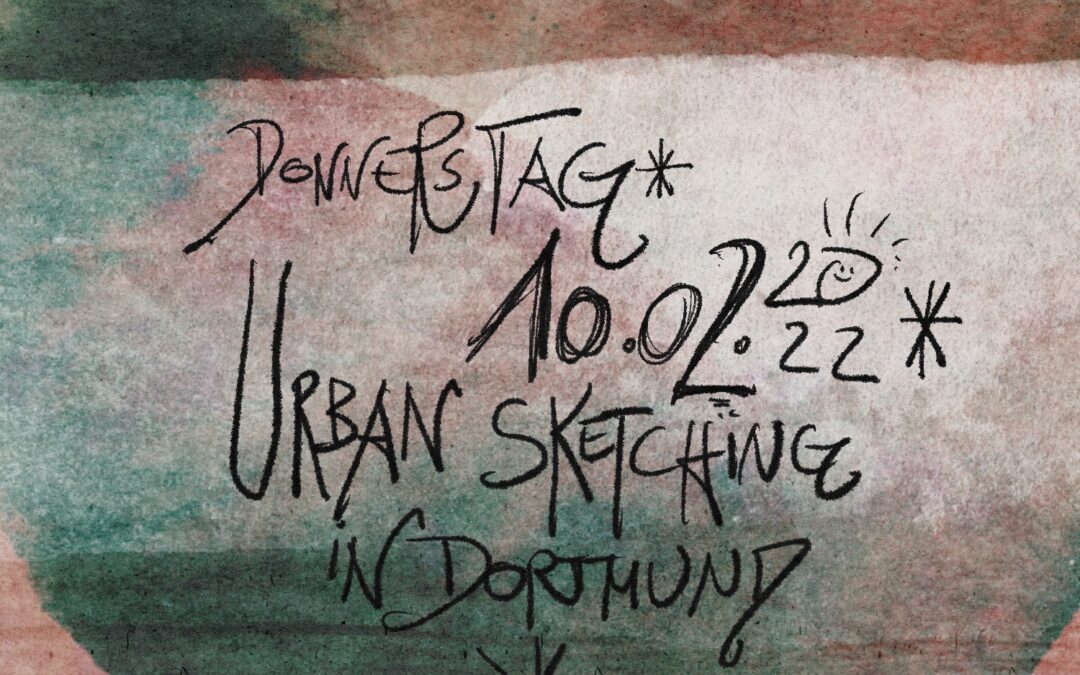 DONNERSTAG*
10.02.2022*
URBAN SKETCHING
IN DORTMUND